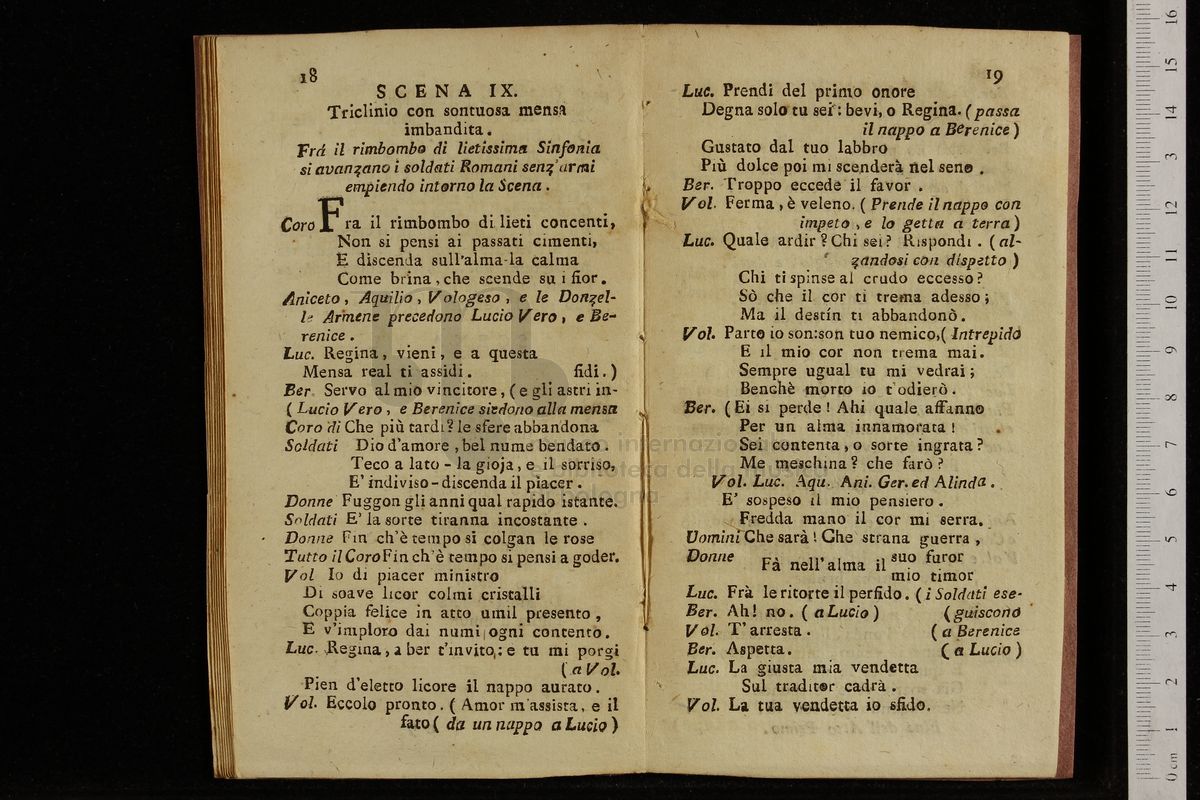 18
SCENA IX.
Triclinio con sontuosa mensa
imbandita.
Frá il rimbombo di lietissima Sinfonia
si avanzano i soldati Romani senz'armi
empiendo intorno la Scena.
Coro Fra il rimbombo di lieti concenti,
Non si pensi ai passati cimenti,
E discenda sull'alma-la calma
Come brina, che scende su i fior.
Aniceto, Aquilio, Vologeso, e le Donzel-
le Armene precedono Lucio Vero, e Be-
renice.
Luc. Regina, vieni, e a questa
Mensa real ti assidi. fidi.)
Ber. Servo al mio vincitore, (e gli astri in-
(Lucio Vero, e Berenice siedono alla mensa
Coro di Che più tardi? le sfere abbandona
Soldati Dio d'amore, bel nume bendato.
Teco a lato - la gioja, e il sorriso,
E' indiviso - discenda il piacer.
Donne Fuggon gli anni qual rapido istante.
Soldati E' la sorte tiranna incostante.
Donne Fin ch'è tempo si colgan le rose
Tutto il Coro Fin ch'è tempo si pensi a goder.
Vol Io di piacer ministro
Di soave licor colmi cristalli
Coppia felice in atto umil presento,
E v'imploro dai numi ogni contento.
Luc. Regina, a ber t'invito,: e tu mi porgi
(a Vol.
Pien d'eletto licore il nappo aurato.
Vol. Eccolo pronto. (Amor m'assista, e il
fato (da un nappo a Lucio)
19
Luc. Prendi del primo onore
Degna solo tu sei: bevi, o Regina. (passa
il nappo a Berenice)
Gustato dal tuo labbro
Più dolce poi mi scenderà nel seno.
Ber. Troppo eccede il favor.
Vol. Ferma, è veleno. (Prende il nappo con
impeto, e lo getta a terra)
Luc. Quale ardir? Chi sei? Rispondi. (al-
zandosi con dispetto)
Chi ti spinse al crudo eccesso?
Sò che il cor ti trema adesso;
Ma il destin ti abbandonò.
Vol. Parto io son: son tuo nemico, (Intrepido
E il mio cor non trema mai.
Sempre ugual tu mi vedrai;
Benchè morto io t'odierò.
Ber. (Ei si perde! Ahi quale affanno
Per un alma innamorata!
Sei contenta, o sorte ingrata?
Me meschina? che farò?
Vol. Luc. Aqu. Ani. Ger. ed Alinda.
E' sospeso il mio pensiero.
Fredda mano il cor mi serra.
Uomini Che sarà! Che strana guerra,
Donne Fà nell'alma il suo furor
mio timor
Luc. Frà le ritorte il perfido. (i Soldati ese-
Ber. Ah! no. (a Lucio) (guiscono
Vol. T'arresta. (a Berenice
Ber. Aspetta. (a Lucio)
Luc. La giusta mia vendetta
Sul traditor cadrà.
Vol. La tua vendetta io sfido.